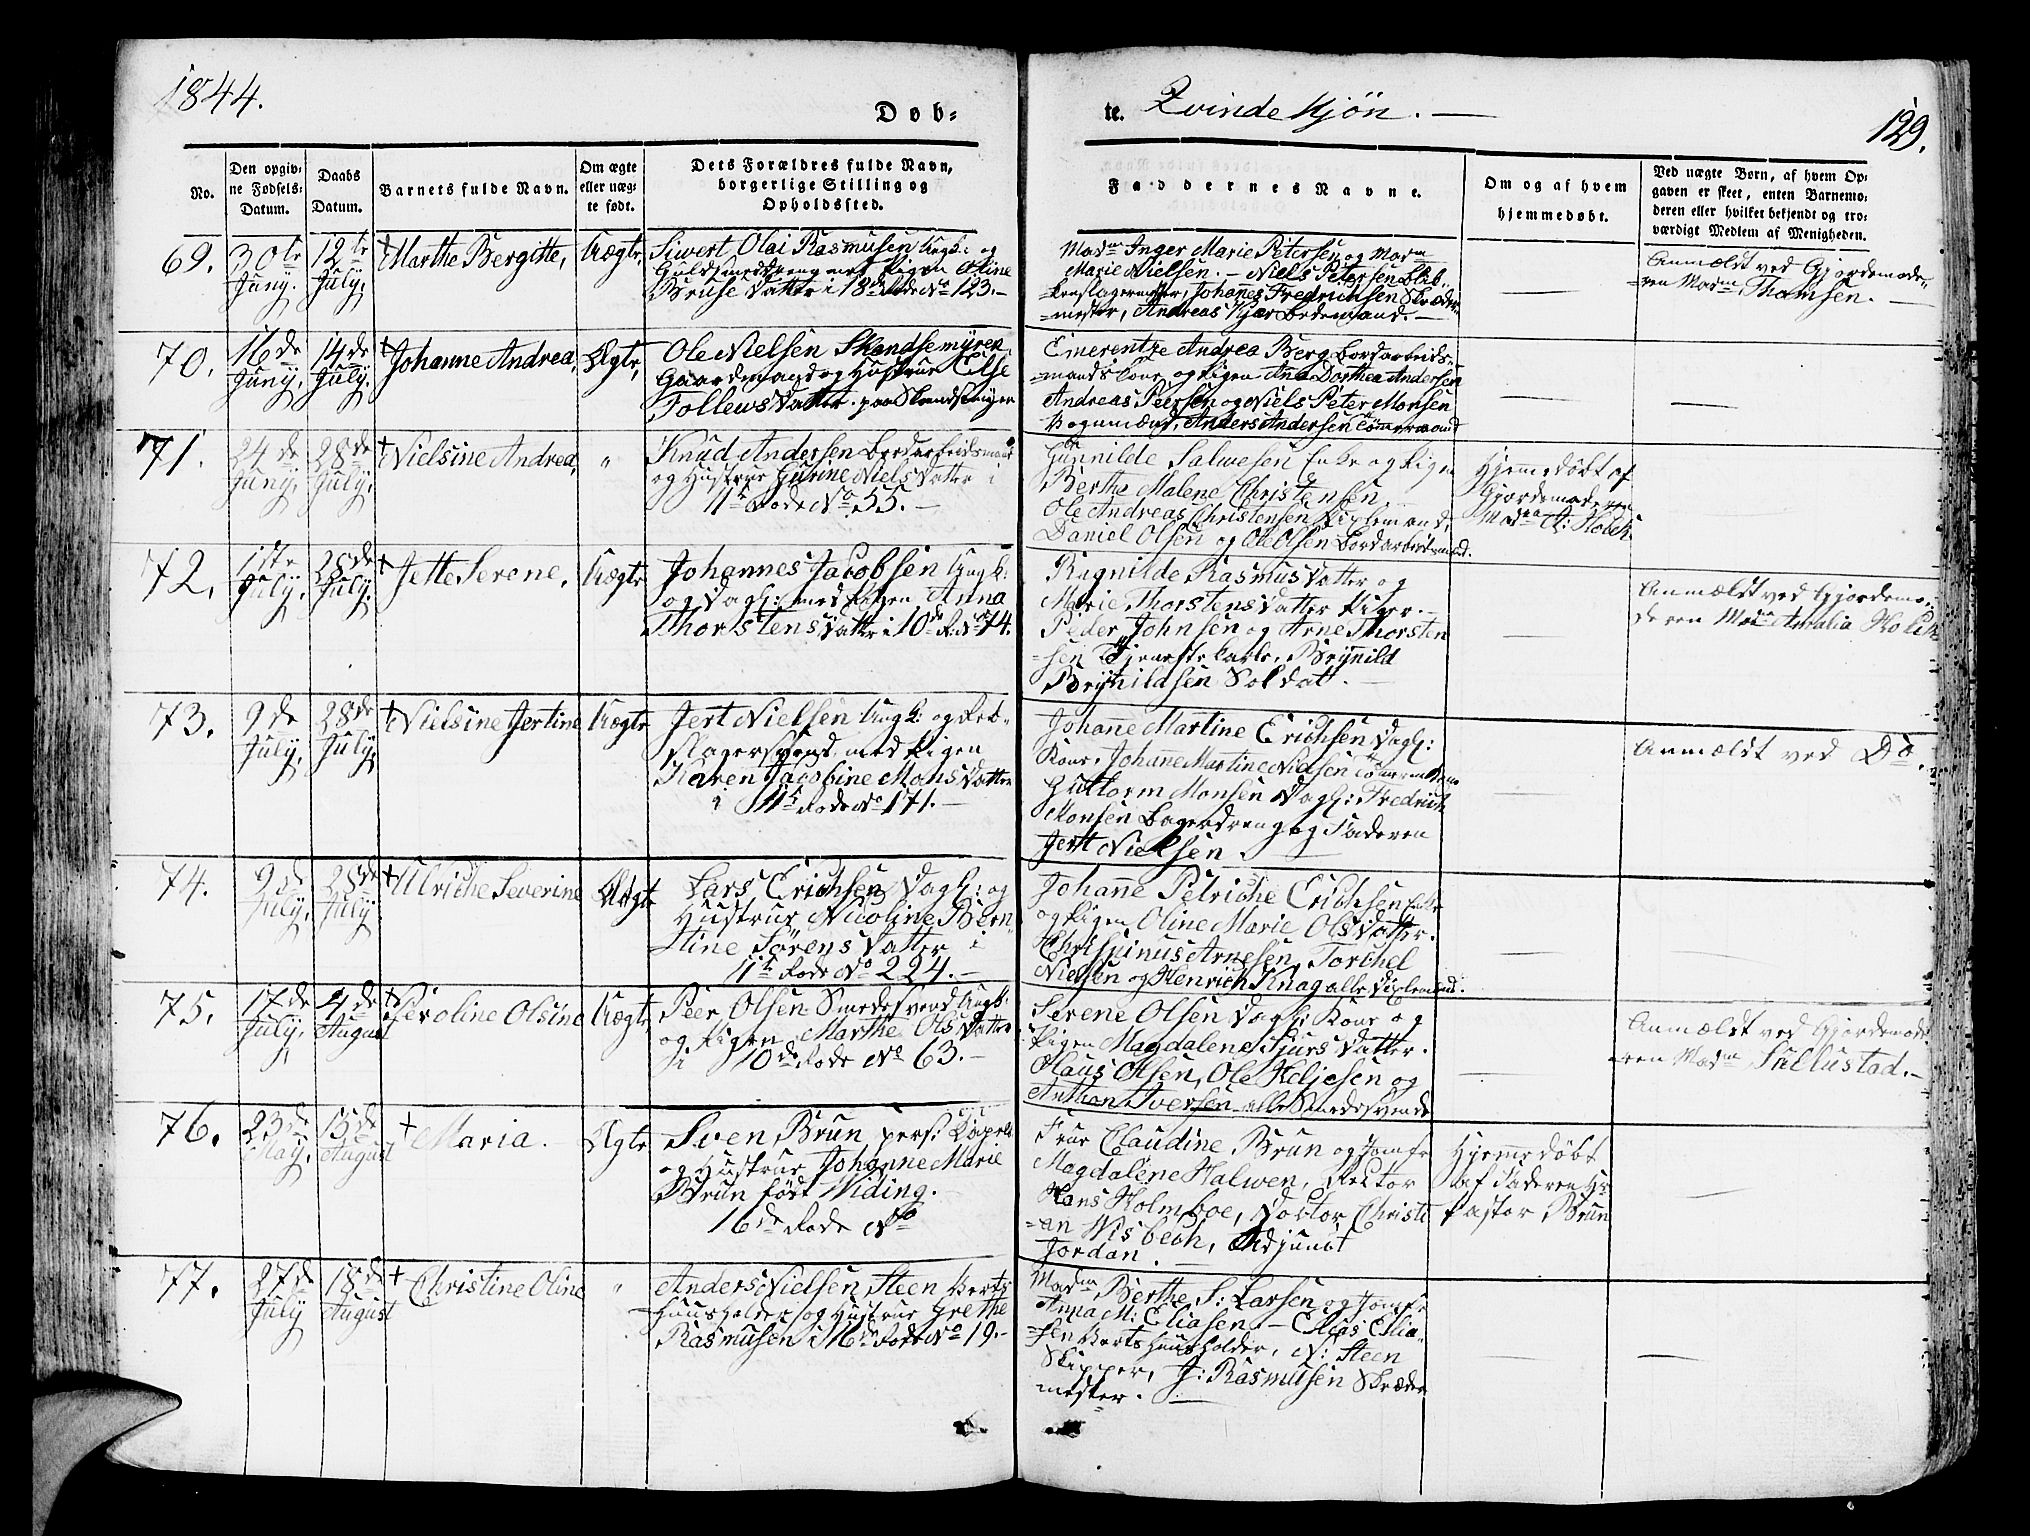 1844.
Døb-
te. Qvinde Kjøn. —
129.
No.
Den opgiv-
ne Fødsels-
Datum.
Daabs
Datum.
Barnets fulde Navn.
Om ægte
eller uæg-
te født.
Dets Forældres fulde Navn,
borgerlige Stilling og
Opholdssted.
Faddernes Navne.
Om og af hvem
hjemmedøbt.
Ved uægte Børn, af hvem Op-
gaven er skeet, enten Barnemo-
deren eller hvilket bekjendt og tro-
værdigt Medlem af Menigheden.
69. 30te Juny. 12te July. + Marthe Bergitte, Uægte,
Siwert Olai Rasmusen Ungk: og
Guldsmeddreng med Pigen Oline
Bruse Datter i 18de Rode No 123.—
Madm Inger Marie Petersen og Madm
Marie Nielsen. — Niels Petersen Blik-
kenslagermester, Johanes Fredrichsen Skreder-
=mester, Andreas Kjær Bedemand. —
—
Anmældt ved Gjordemode-
=ren Madm Thomsen. —
70. 16de Juny, 14de July. + Johanne Andrea, Ægte,
Ole Nielsen Skandsemyren
Gaardmand og Hustrue Else
Tollews Datter paa Skandsemyren
Emerentze Andrea Berg Bordarbeids-
=mands Kone og Pigen Ana Dorthea Andersen
Andreas Peersen og Niels Peter Monsen
Anders Andersen Tømmermand
—
—
71. 24de Juny, 28de July, + Nielsine Andrea, "
Knud Andersen Bordarbeidsmand
og Hustrue Gurine Niels Datter i
11te Rode No 55. —
Gunnilde Salwesen Enke og Pigen
Berthe Malene Christensen
Ole Andreas Christensen
Daniel Olsen og Ole Olsen Bordarbeidsmænd.
Hjemedøbt af
Gjordemoderen
Madm A: Holck.
—
72. 1ste July, 28de July. + Jette Serene, Uægte
Johannes Jacobsen Ungk:
og Dagl: med Pigen Anna
Thorstens Datter i 10de Rd. No 74.
Ragnilde Rasmus Datter og
Marie Thorstens Datter Piger. —
Peder Johnsen og Arne Thorsten
=sen Tjenestekarle, Brynild
Brynildsen Soldat. —
—
Anmældt ved Gjordemo-
deren Madm Amalia Holck
73. 9de July, 28de July, + Nielsine Jertine Uægte
Jert Nielsen Ungk: og Reb-
slagersvend med Pigen
Karen Jacobine Mons Datter
i 11te Rode No 171. —
Johane Martine Erichsen Dagl:
Kone, Johane Martine Nielsen
Guttorm Monsen Dagl: Fredrich
Monsen Bagerdreng og Faderen
Jertt Nielsen —
—
Anmældt ved Do.
74. 9de July, 28de July + Ulriche Severine Ægte
Lars Erichsen Dagl: og
Hustrue Nicoline Bern-
tine Sørens Datter i
11te Rode No 224. —
Johane Petriche Erichsen Enke
og Pigen Oline Marie Ols Datter.
Chrispinus Arnesen, Torchel
Nielsen og Henrich Knag alle
—
—
75. 17de July, 4de August + Seroline Olsine Uægte
Peer Olsen Smedesvend Ungk:
og Pigen Marthe Ols Datter
i 10de Rode No 63. —
Serene Olsen Dagl: Kone og
Pigen Magdalene Sjurs Datter.
Claus Olsen, Ole Heljesen og
Anthon Iversen alle Smedesvende
—
Anmældt ved Gjordemode
=ren Madm Sællustad. —
76. 23de May, 15de August + Maria. — Ægte
Sven Brun, pers: Capel:
og Hustrue Johanne Marie
Brun født Widing. —
16de Rode No
Frue Claudine Brun og Jomfr
Magdalene Halwen, Rector
Hans Holmboe, Doctor Christi
=an Wisbech, Adjunct
Jordan. —
Hjemedøbt
af Faderen Hr
Pastor Brun
—
77. 27de July 18de August + Christine Oline "
Anders Nielsen Steen Verts-
huusholder og Hustrue Grethe
Rasmusen i 16de Rode No 19. —
Madm Berthe S: Larsen og Jomfr
Anna M: Eliasen. — Elias Elia-
=sen Vertshuusholder, N: Steen
Skipper, J: Rasmusen Skræder
mester. —
—
—